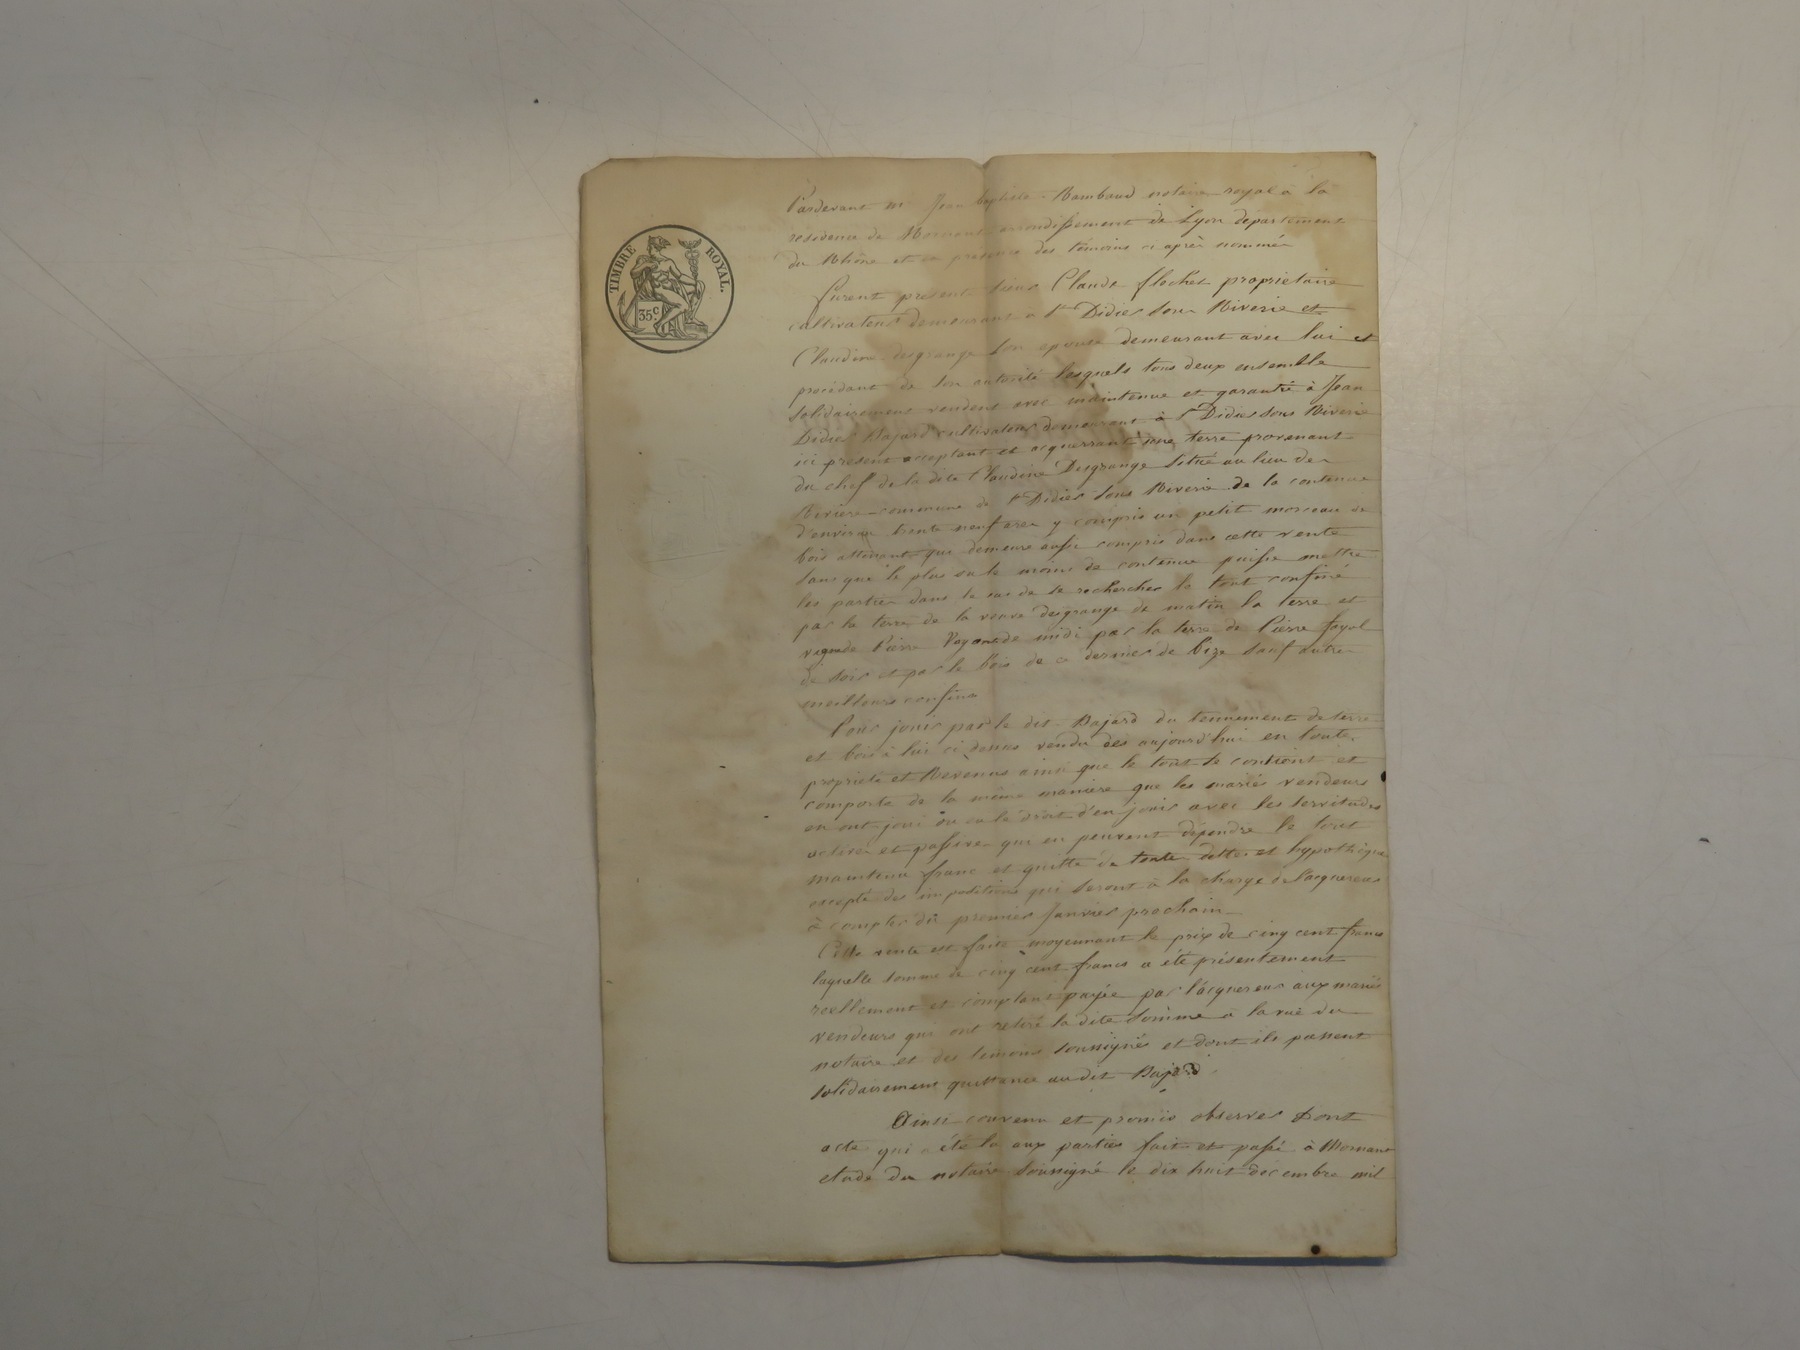 TIMBRE ROYAL.
35c.
Pardevant me Jean baptiste Rambaud notaire royal à la
residence de Mornant arrondissement de Lyon département
du Rhône et en presence des témoins ci après nommés
furent présents sieur Claude flachet proprietaire
cultivateur demeurant a st Didier sous Riverie et
Claudine desgrange son epouse demeurant avec lui et
procédant de son autorité lesquels tous deux ensemble
solidairement vendent avec maintenue et garantie à Jean
Didier Bajard cultivateur demeurant à st Didier sous Riverie
ici présent acceptant et acquerrant une terre provenant
du chef de la dite Claudine Desgrange située au lieu de
commune de st Didier sous Riverie de la contenue
d'environ trente neuf ares y compris un petit morceau de
bois attenant qui demeure aussi compris dans cette vente
sans que le plus ou le moins de contenue puisse mettre
les parties dans le cas de se rechercher le tout confiné
par la terre de la veuve desgrange de matin la terre et
vigne de Pierre de midi par la terre de Pierre fayol
de soir et par le bois de ce dernier de bize sauf autres
meilleurs confins
Pour jouir par le dit Bajard du tennement de terre
et bois à lui ci dessus vendu dès aujourd'hui en toute
propriété et Revenus ainsi que le tout se contient et
comporte de la même manière que les mariés vendeurs
en ont joui ou eu le droit d'en jouir avec les servitudes
actives et passives qui en peuvent dépendre le tout
maintenu franc et quitte de toute dette et hypothèque
excepté des impositions qui seront à la charge de l'acquereur
à compter du premier Janvier prochain
Cette vente est faite moyennant le prix de cinq cent francs
laquelle somme de cinq cent francs a été présentement
reellement et comptant payée par l'acquereur aux mariés
vendeurs qui ont retiré la dite somme a la vue du
notaire et des temoins soussignés et dont ils passent
solidairement quittance au dit Bajard
Ainsi convenu et promis observer Dont
acte qui a été lu aux parties fait et passé à Mornant
etude du notaire soussigné le dix huit décembre mil